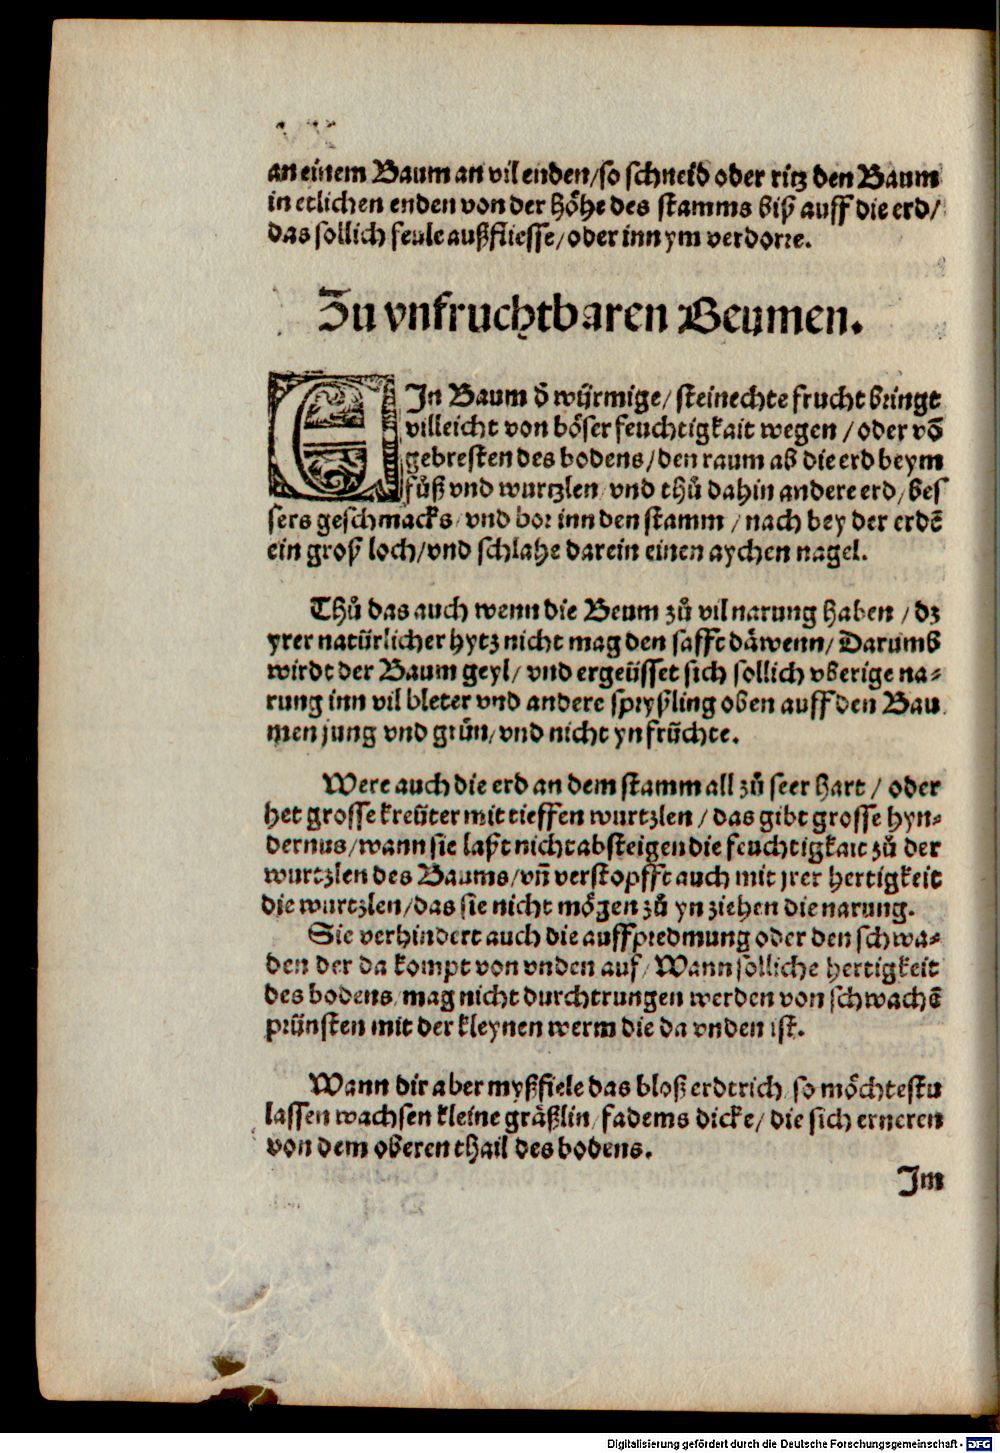 an einem Baum an vil enden/so schneid oder ritz den Baum
in etlichen enden von der höhe des stamms biß auff die erd/
das sollich feule außfliesse/oder inn ym verdorre.
Zu vnfruchtbaren Beumen.
EIn Baum ď würmige/ steinechte frucht bringt
villeicht von böser feuchtigkait wegen / oder võ
gebresten des bodens/den raum ab die erd beym
fůß vnd wurtzlen/ vnd thů dahin andere erd/ bes
sers geschmacks/ vnd bor inn den stamm / nach bey der erdē
ein groß loch/vnd schlahe darein einen aychen nagel.
Thů das auch wenn die Beum zů vil narung haben / dz
yrer natürlicher hytz nicht mag den safft däwenn/ Darumb
wirdt der Baum geyl/ vnd ergeüsset sich sollich vberige na⸗
rung inn vil bleter vnd andere spryßling oben auff den Bau
men jung vnd grün/ vnd nicht yn früchte.
Were auch die erd an dem stamm all zů seer hart / oder
het grosse kreüter mit tieffen wurtzlen / das gibt grosse hyn⸗
dernus/wann sie laßt nicht absteigen die feuchtigkait zů der
wurtzlen des Baums/vñ verstopfft auch mit jrer hertigkeit
die wurtzlen/das sie nicht mögen zů yn ziehen die narung.
Sie verhindert auch die auffpredmung oder den schwa⸗
den der da kompt von vnden auf/ Wann solliche hertigkeit
des bodens/ mag nicht durchtrungen werden von schwachē
prünsten mit der kleynen werm die da vnden ist.
Wann dir aber myßfiele das bloß erdtrich/ so möchtestu
lassen wachsen kleine gräßlin/ fadems dicke/ die sich erneren
von dem oberen thail des bodens.
Jm
Digitalisierung gefördert durch die Deutsche Forschungsgemeinschaft - DFG